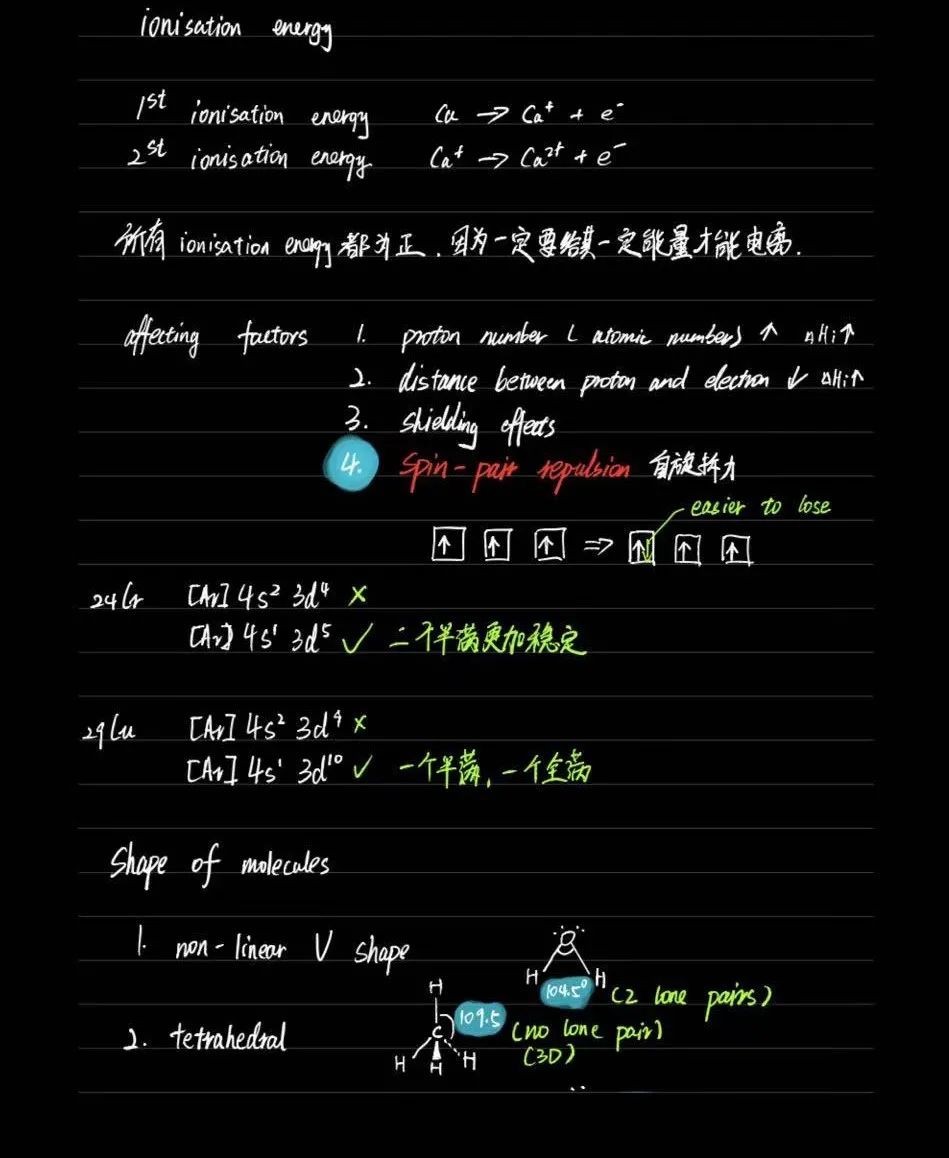 ionisation energy
1st ionisation energy Ca → Ca⁺ + e⁻
2st ionisation energy Ca⁺ → Ca²⁺ + e⁻
所有 ionisation energy 都为正，因为一定要给其一定能量才能电离.
affecting factors 1. proton number ( atomic number) ↑ ΔHi↑
2. distance between proton and electron ↓ ΔHi↑
3. shielding effects
4. Spin-pair repulsion 自旋斥力
easier to lose
↑ ↑ ↑ ⇒ ↑↓ ↑ ↑
24Cr [Ar] 4s² 3d⁴ ×
[Ar] 4s¹ 3d⁵ ✓ 二个半满更加稳定
29Cu [Ar] 4s² 3d⁹ ×
[Ar] 4s¹ 3d¹⁰ ✓ 一个半满，一个全满
Shape of molecules
1. non-linear V shape O
H H
104.5° (2 lone pairs)
H
2. tetrahedral C 109.5 (no lone pair)
H H H (3D)